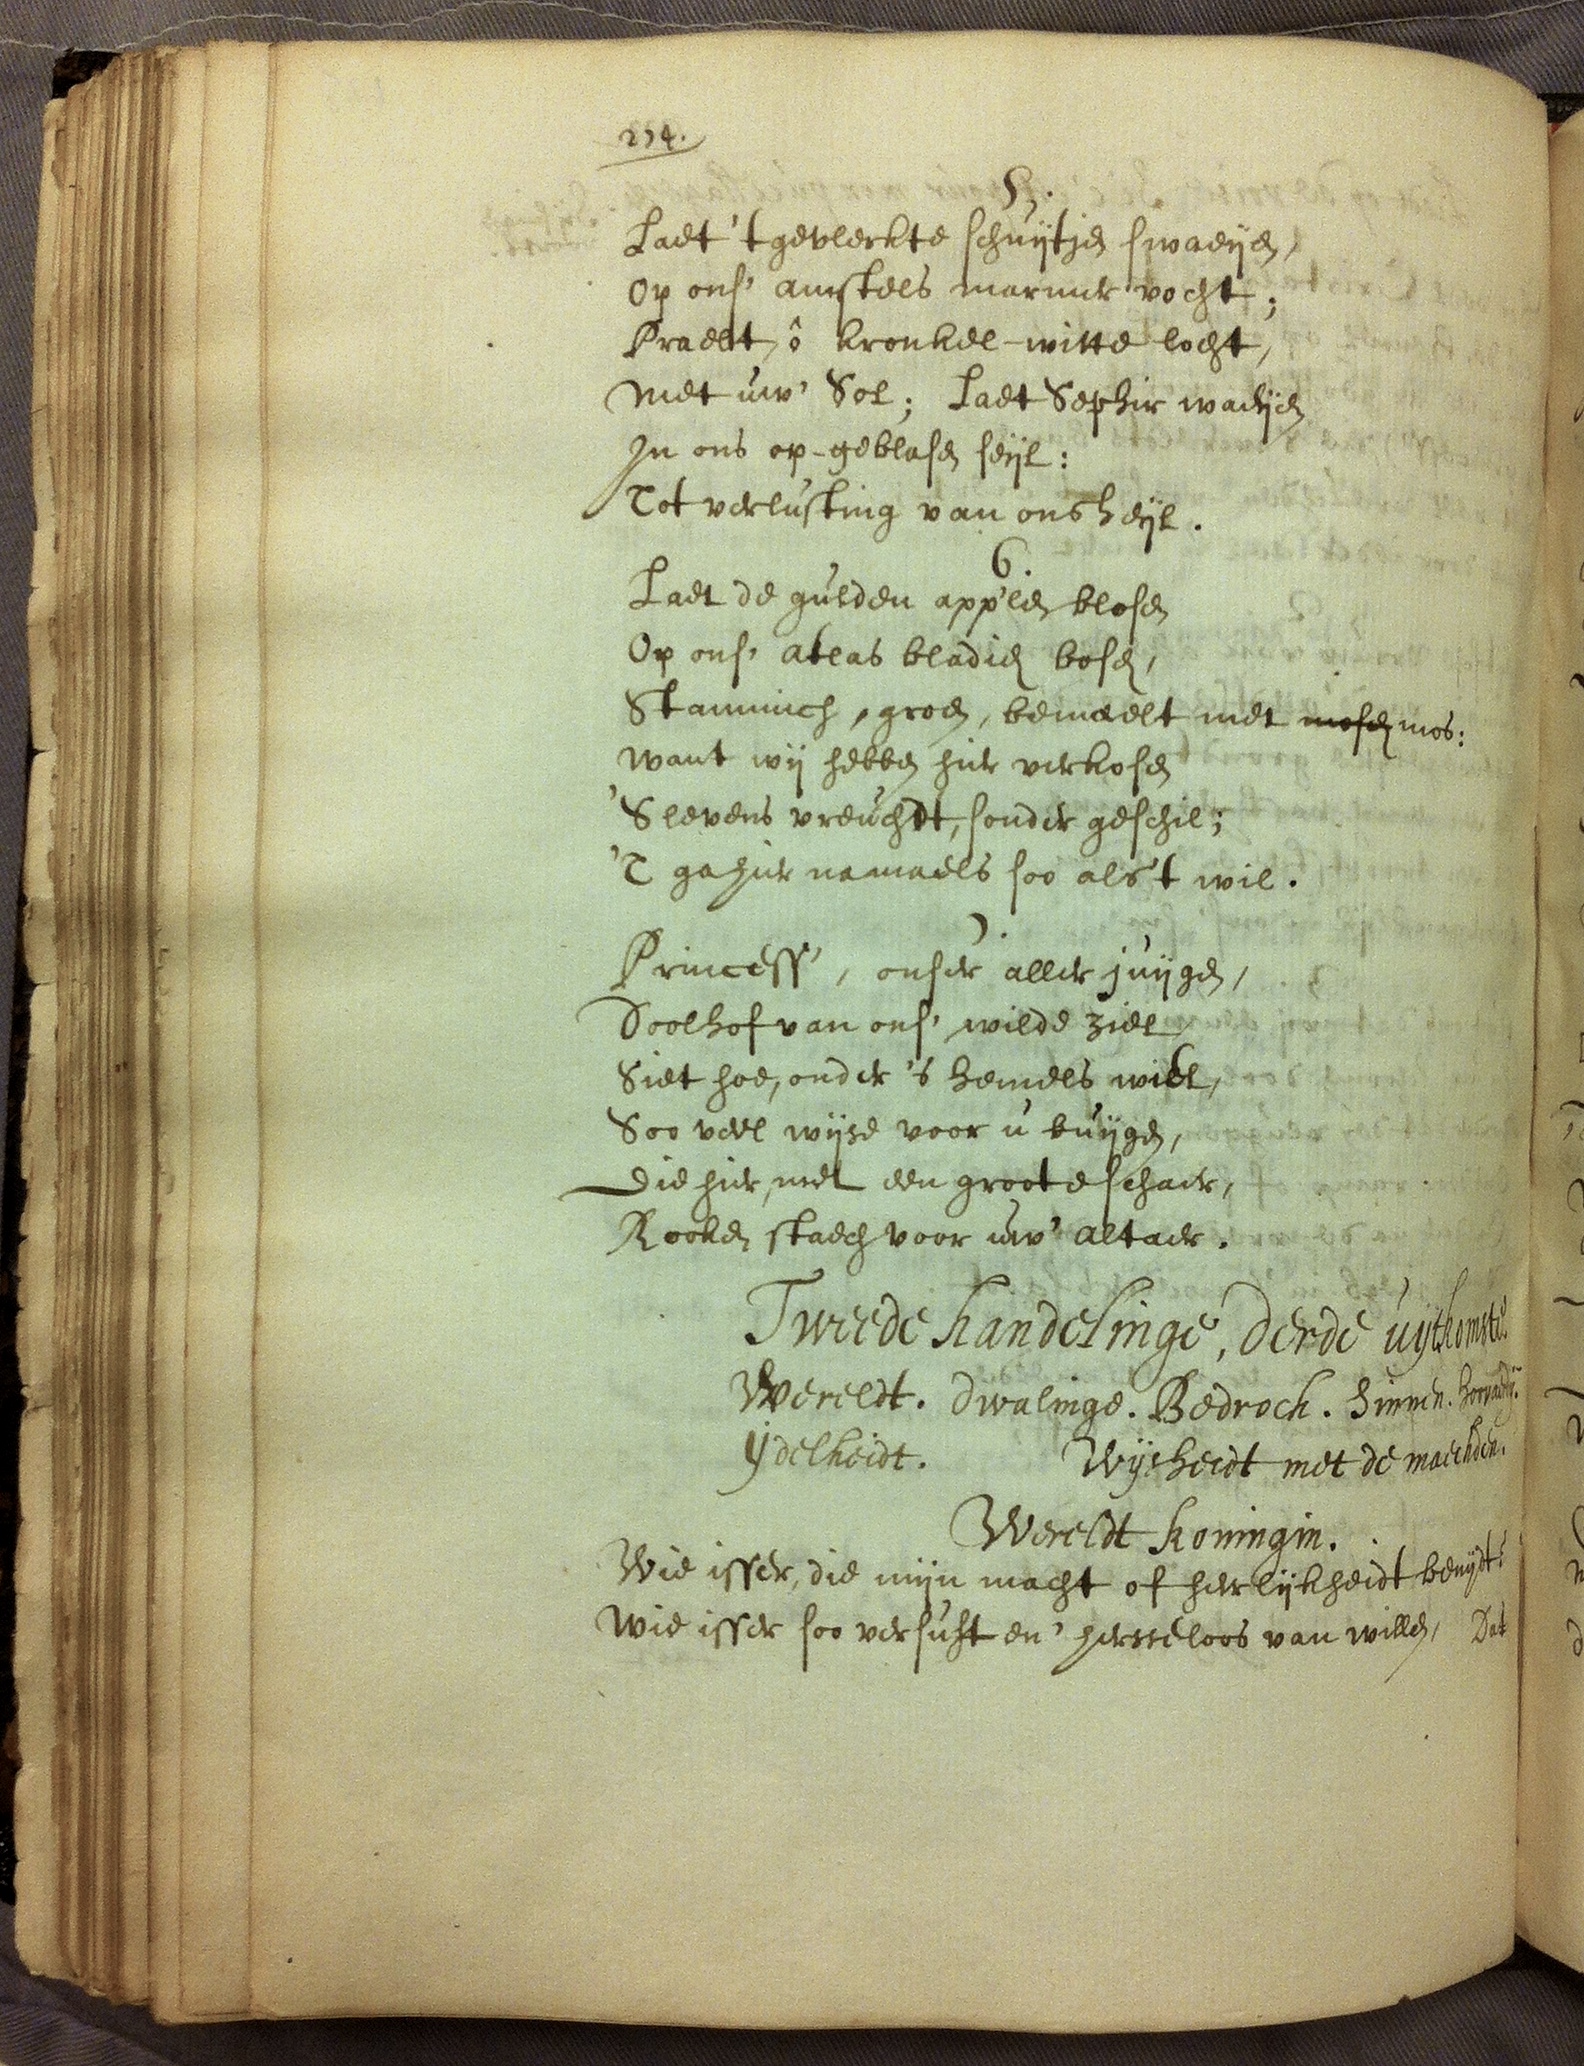 274.
5.
Laet 't gevlerkte schuijtjen swaeijen,
Op ons' amstels marmer vocht;
Praelt, ô kronkel-witte locht,
Met uw' Sol; Laet Sephir waeijen
In ons op-geblasen seijl:
Tot verlusting van ons heijl.
6.
Laet de gulden app'len blosen
Op ons' atlas bladien bosen,
Stammich, groen, bemaelt met mosen mos:
Want wij hebben hier verkosen
'S levens vreuchdt, sonder geschil;
'T ga hier namaels soo als 't wil.
7.
Princess', onser aller juijgen,
Doolhof van ons' wilde ziel
Siet hoe, onder 's hemels wiel,
Soo veel wijse voor u buijgen,
Die hier, met een groote schaer,
Rooken staech voor uw' altaer.
Tweede handelinge, derde uijtkomste.
Wereldt. Dwalinge. Bedroch. Sinnen. hovaerdij.
Ijdelheidt. Wijsheidt met de maechden.
Wereldt koningin.
Wie isser, die mijn macht of heerlijkheidt benijdt?
Wie isser soo versuft en' herseloos van willen, Dat